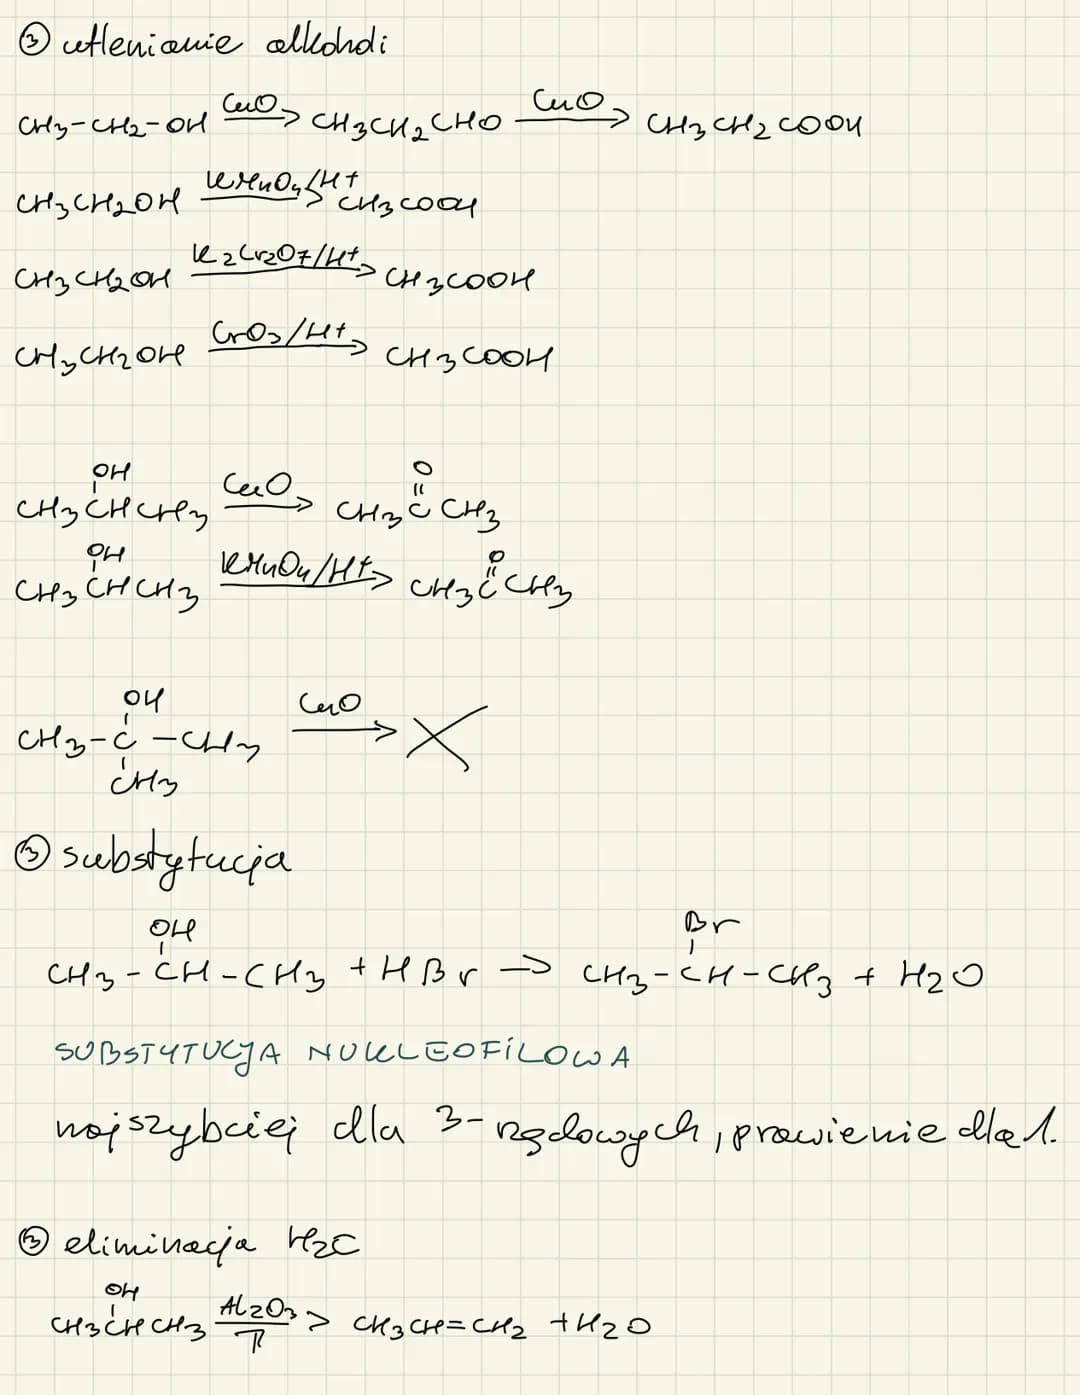 ③ utlenianie alkoholi
CH3-CH2-OH CuO→ CH3CH2CHO CuO→ CH3CH2COOH
CH3CH2OH KMnO4/H+→ CH3COOH
CH3CH2OH K2Cr2O7/H+→ CH3COOH
CH3CH2OH CrO3/H+→ CH3COOH
OH O
CH3CHCH3 CuO→ CH3CCH3
OH O
CH3CHCH3 KMnO4/H+→ CH3CCH3
OH
CH3-C-CH3 CuO→ X
CH3
③ substytucja
OH Br
CH3-CH-CH3 + HBr → CH3-CH-CH3 + H2O
SUBSTYTUCJA NUKLEOFILOWA
najszybciej dla 3-rzędowych, prawie nie dla 1.
③ eliminacja H2O
OH
CH3CHCH3 Al2O3/T> CH3CH=CH2 + H2O